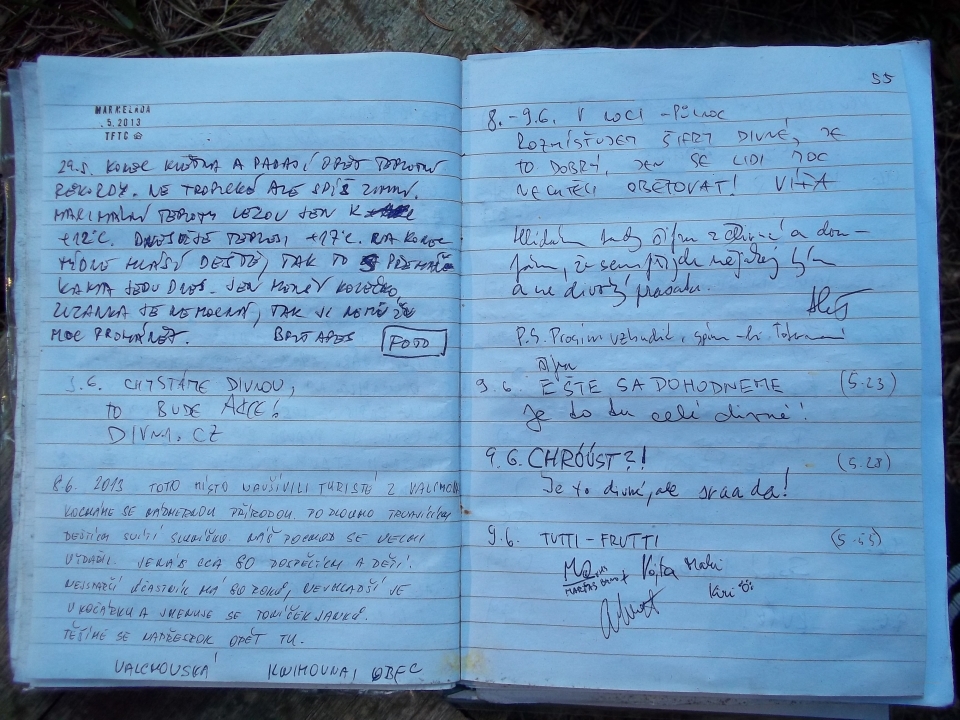 MARMELADA
.5.2013
TFTC
29.5. KONEC KVĚTNA A PADAJÍ OPĚT TEPLOTNÍ
REKORDY. NE TROPICKÉ ALE SPÍŠ ZIMNÍ.
MAXIMÁLNÍ TEPLOTY LEZOU JEN K
+12°C. DNES JEŠTĚ TEPLO, +17°C. NA KONEC
TÝDNE HLÁSÍ DEŠTĚ, TAK TO
JEDU DNES. JEN KOLEČKO
ZUZANKA JE NEMOCNÁ, TAK SI NEMŮŽE
MOC FOTO
3.6. CHYSTÁME DIVNOU,
TO BUDE AKCE!
DIVNI.CZ
8.6. 2013 TOTO MÍSTO NAVŠTÍVILI TURISTÉ Z VALCHOVA
KOCHÁME SE NÁDHERNOU PŘÍRODOU. PO DLOUHO TRVAJÍCÍCH
DEŠTÍCH SVÍTÍ SLUNÍČKO. NÁŠ POCHOD SE VELMI
VYDAŘIL. JE NÁS CCA 80 DOSPĚLÝCH A DĚTÍ.
NEJSTARŠÍ ÚČASTNÍK MÁ 80 ROKŮ, NEJMLADŠÍ JE
V KOČÁRKU A JMENUJE SE TONÍČEK JANKŮ.
TĚŠÍME SE NAPŘESROK OPĚT TU.
VALCHOVSKÁ KNIHOVNA, OBEC
55
8.-9.6. V NOCI - PŮLNOC
ROZMISŤUJEM ŠIFRY DIVNÉ, JE
TO DOBRÝ, JEN SE LIDI MOC
NECHTĚLI OBĚTOVAT! VÍŤA
Hlídám tady šifru z Divné a dou-
fám, že sem přijde nějaký tým
a ne divoký prasata.
P.S. Prosím vzbudit, spím-li.
šifru
9.6. EŠTE SA DOHODNEME (5.23)
Je to tu celé divné!
9.6. CHRÓÚST?! (5.28)
Je to divné, ale sranda!
9.6. TUTTI-FRUTTI (5:55)
Vojta